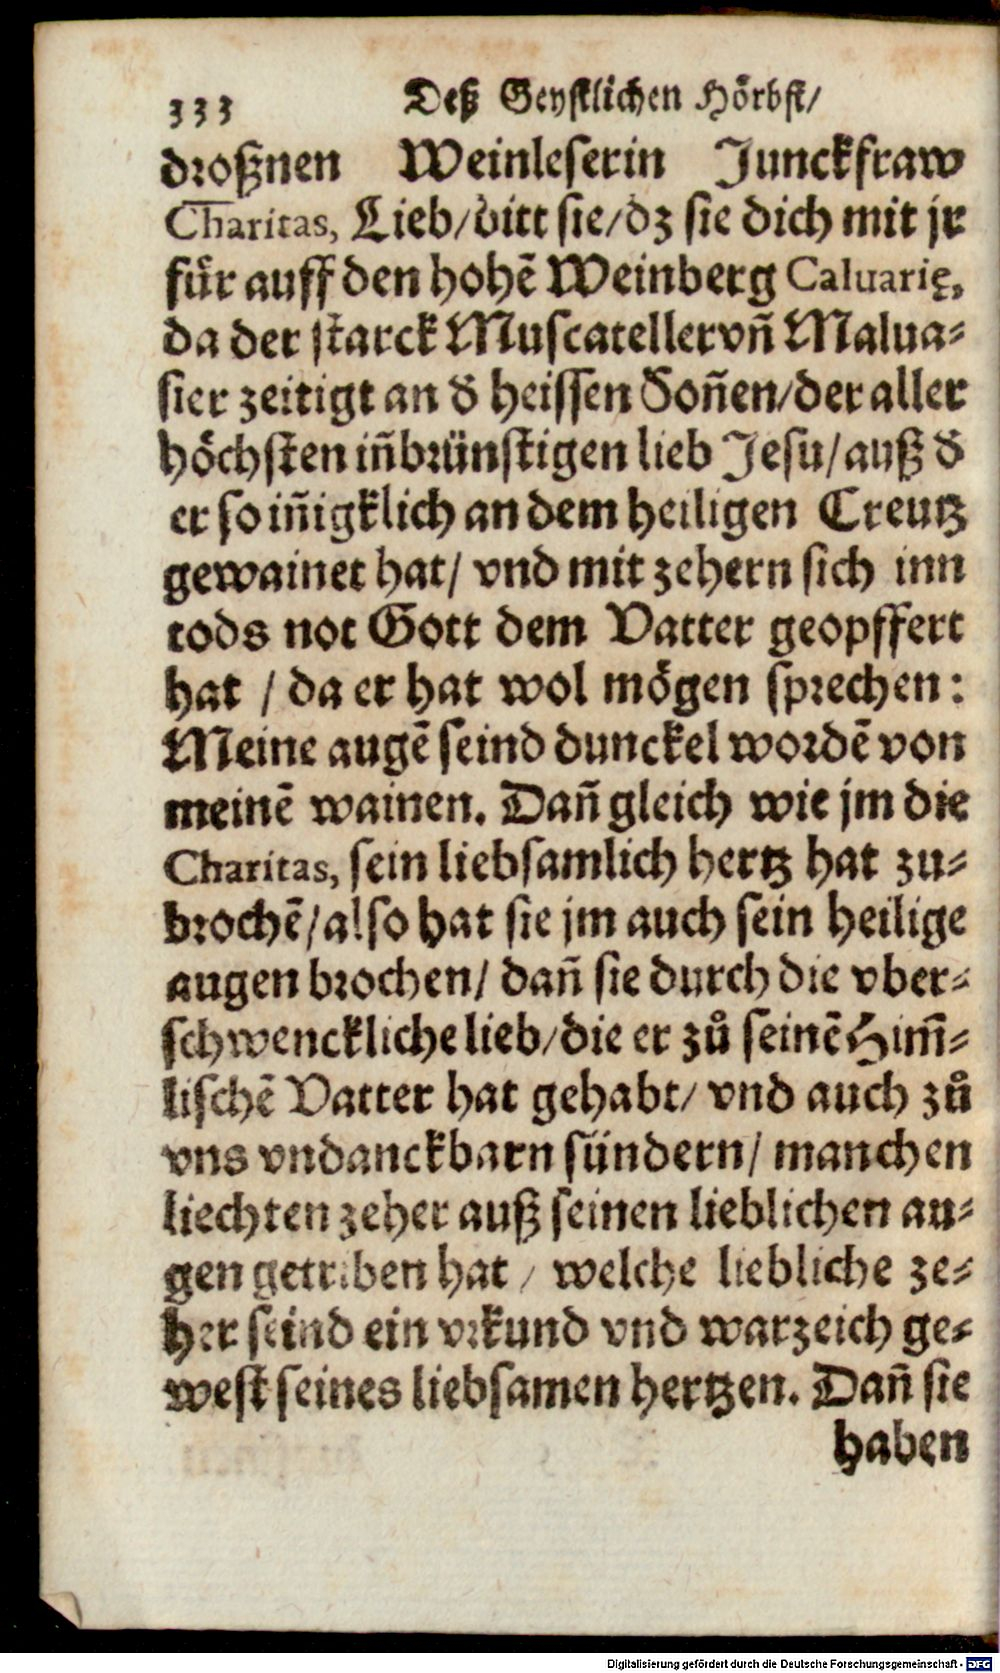 333 Deß Geystlichen Hörbst/
droßnen Weinleserin Junckfraw
Charitas, Lieb/bitt sie/dz sie dich mit jr
für auff den hohẽ Weinberg Caluarię,
da der starck Muscateller vñ Malua-
sier zeitigt an d̕ heissen Soñen/der aller
höchsten iñbrünstigen lieb Jesu/auß d̕
er so iñigklich an dem heiligen Creutz
gewainet hat/ vnd mit zehern sich inn
tods not Gott dem Vatter geopffert
hat / da er hat wol mögen sprechen:
Meine augẽ seind dunckel wordẽ von
meinẽ wainen. Dañ gleich wie jm die
Charitas, sein liebsamlich hertz hat zu-
brochẽ/also hat sie jm auch sein heilige
augen brochen/ dañ sie durch die vber-
schwenckliche lieb/die er zů seinẽ Him̃-
lischẽ Vatter hat gehabt/ vnd auch zů
vns vndanckbarn sündern/ manchen
liechten zeher auß seinen lieblichen au-
gen getriben hat / welche liebliche ze-
her seind ein vrkund vnd warzeich ge-
west seines liebsamen hertzen. Dañ sie
haben
Digitalisierung gefördert durch die Deutsche Forschungsgemeinschaft - DFG